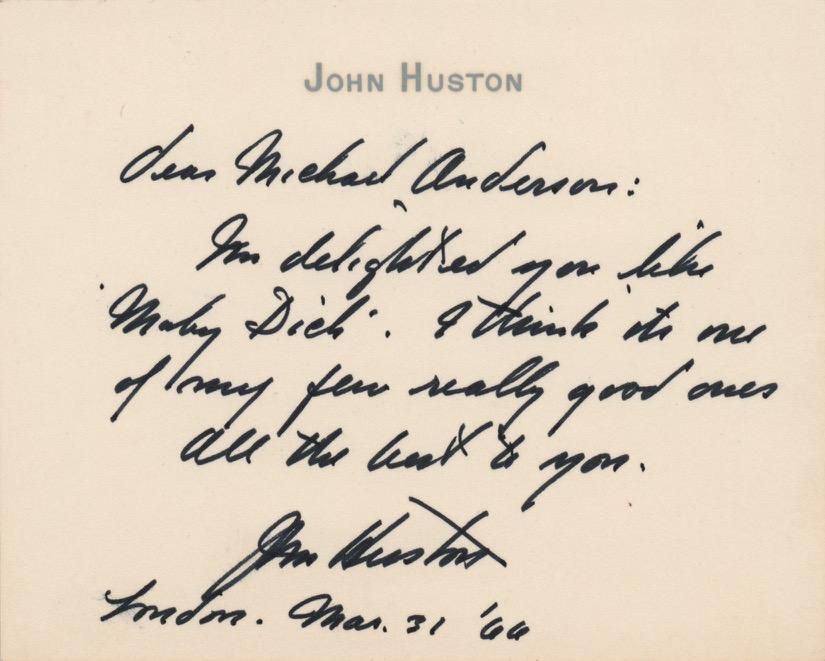 JOHN HUSTON
dear Michael Anderson:
I'm delighted you like
'Moby Dick'. I think its one
of my few really good ones
All the best to you.
John Huston
London. Mar. 31 '66